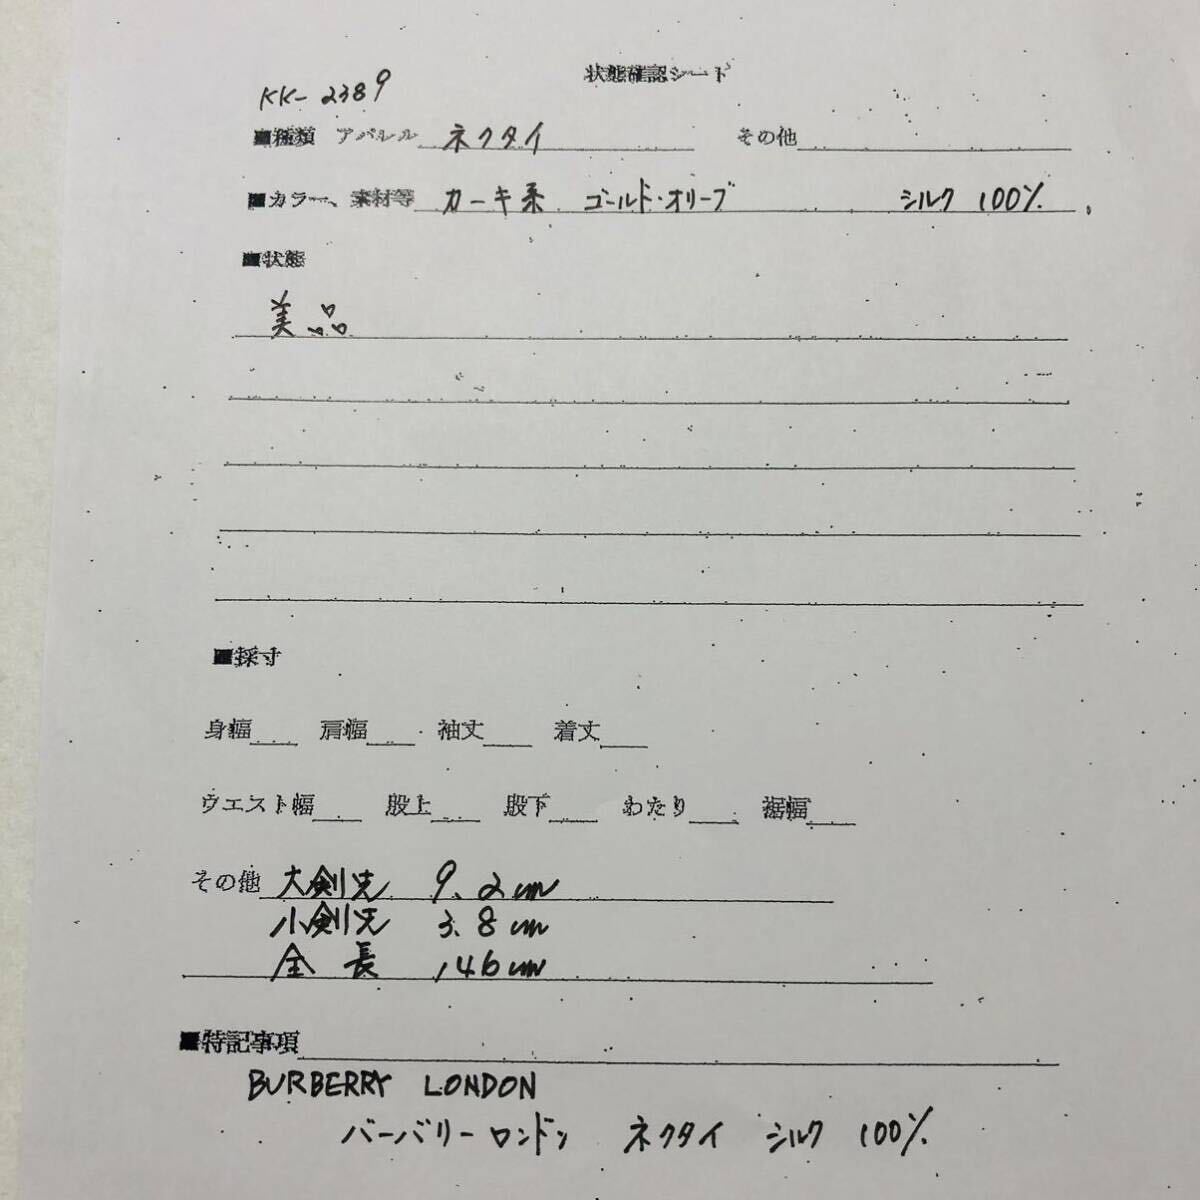 状態確認シート
KK-2389
■種類 アパレル ネクタイ その他
■カラー、素材等 カーキ系 ゴールド・オリーブ シルク 100%
■状態
美品
■採寸
身幅 肩幅 袖丈 着丈
ウエスト幅 股上 股下 わたり 裾幅
その他 大剣先 9.2cm
小剣先 3.8cm
全長 146cm
■特記事項
BURBERRY LONDON
バーバリーロンドン ネクタイ シルク 100%